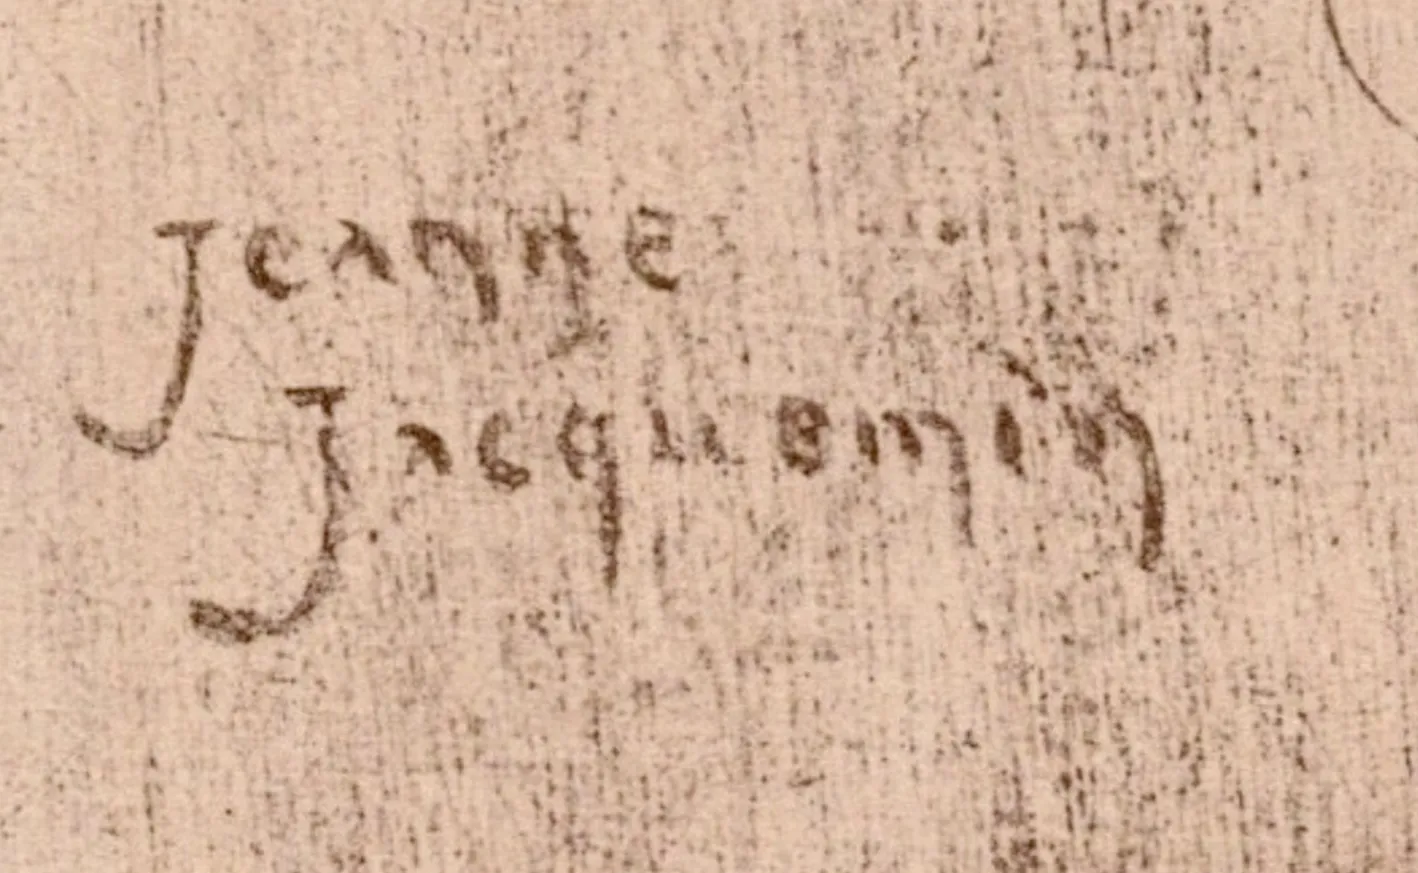 Jeanne
Jacquemin